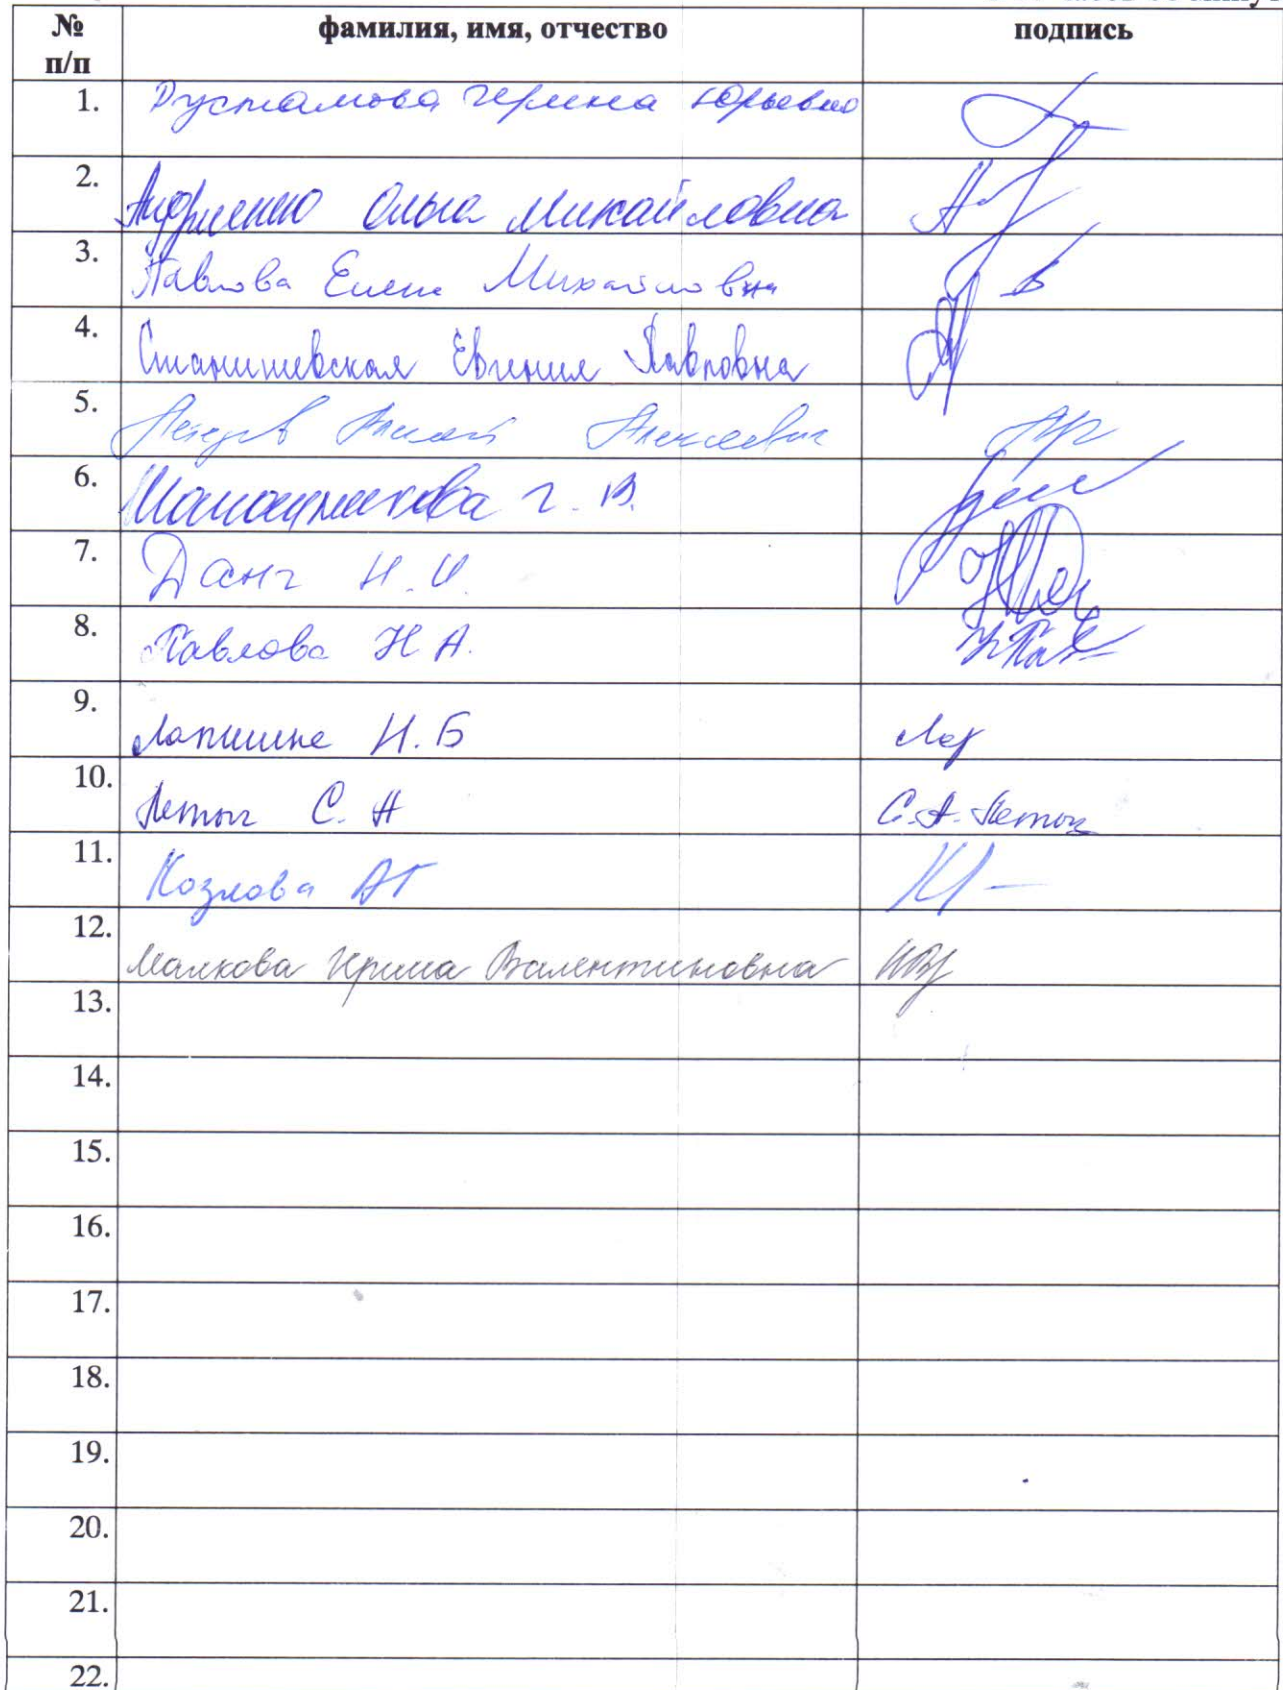 № п/п фамилия, имя, отчество подпись
1. Рустамова Ирина Юрьевна
2. Андриенко Ольга Михайловна
3. Павлова Елена Михайловна
4. Станишевская Евгения Павловна
5. Алексеевич
6. Г. В.
7. Данг Н. И.
8. Павлова Н А.
9. Лапшина Н. Б Лап
10. Летюг С. А С. А. Летюг
11. Козлова АГ
12. Малкова Ирина Валентиновна
13.
14.
15.
16.
17.
18.
19.
20.
21.
22.